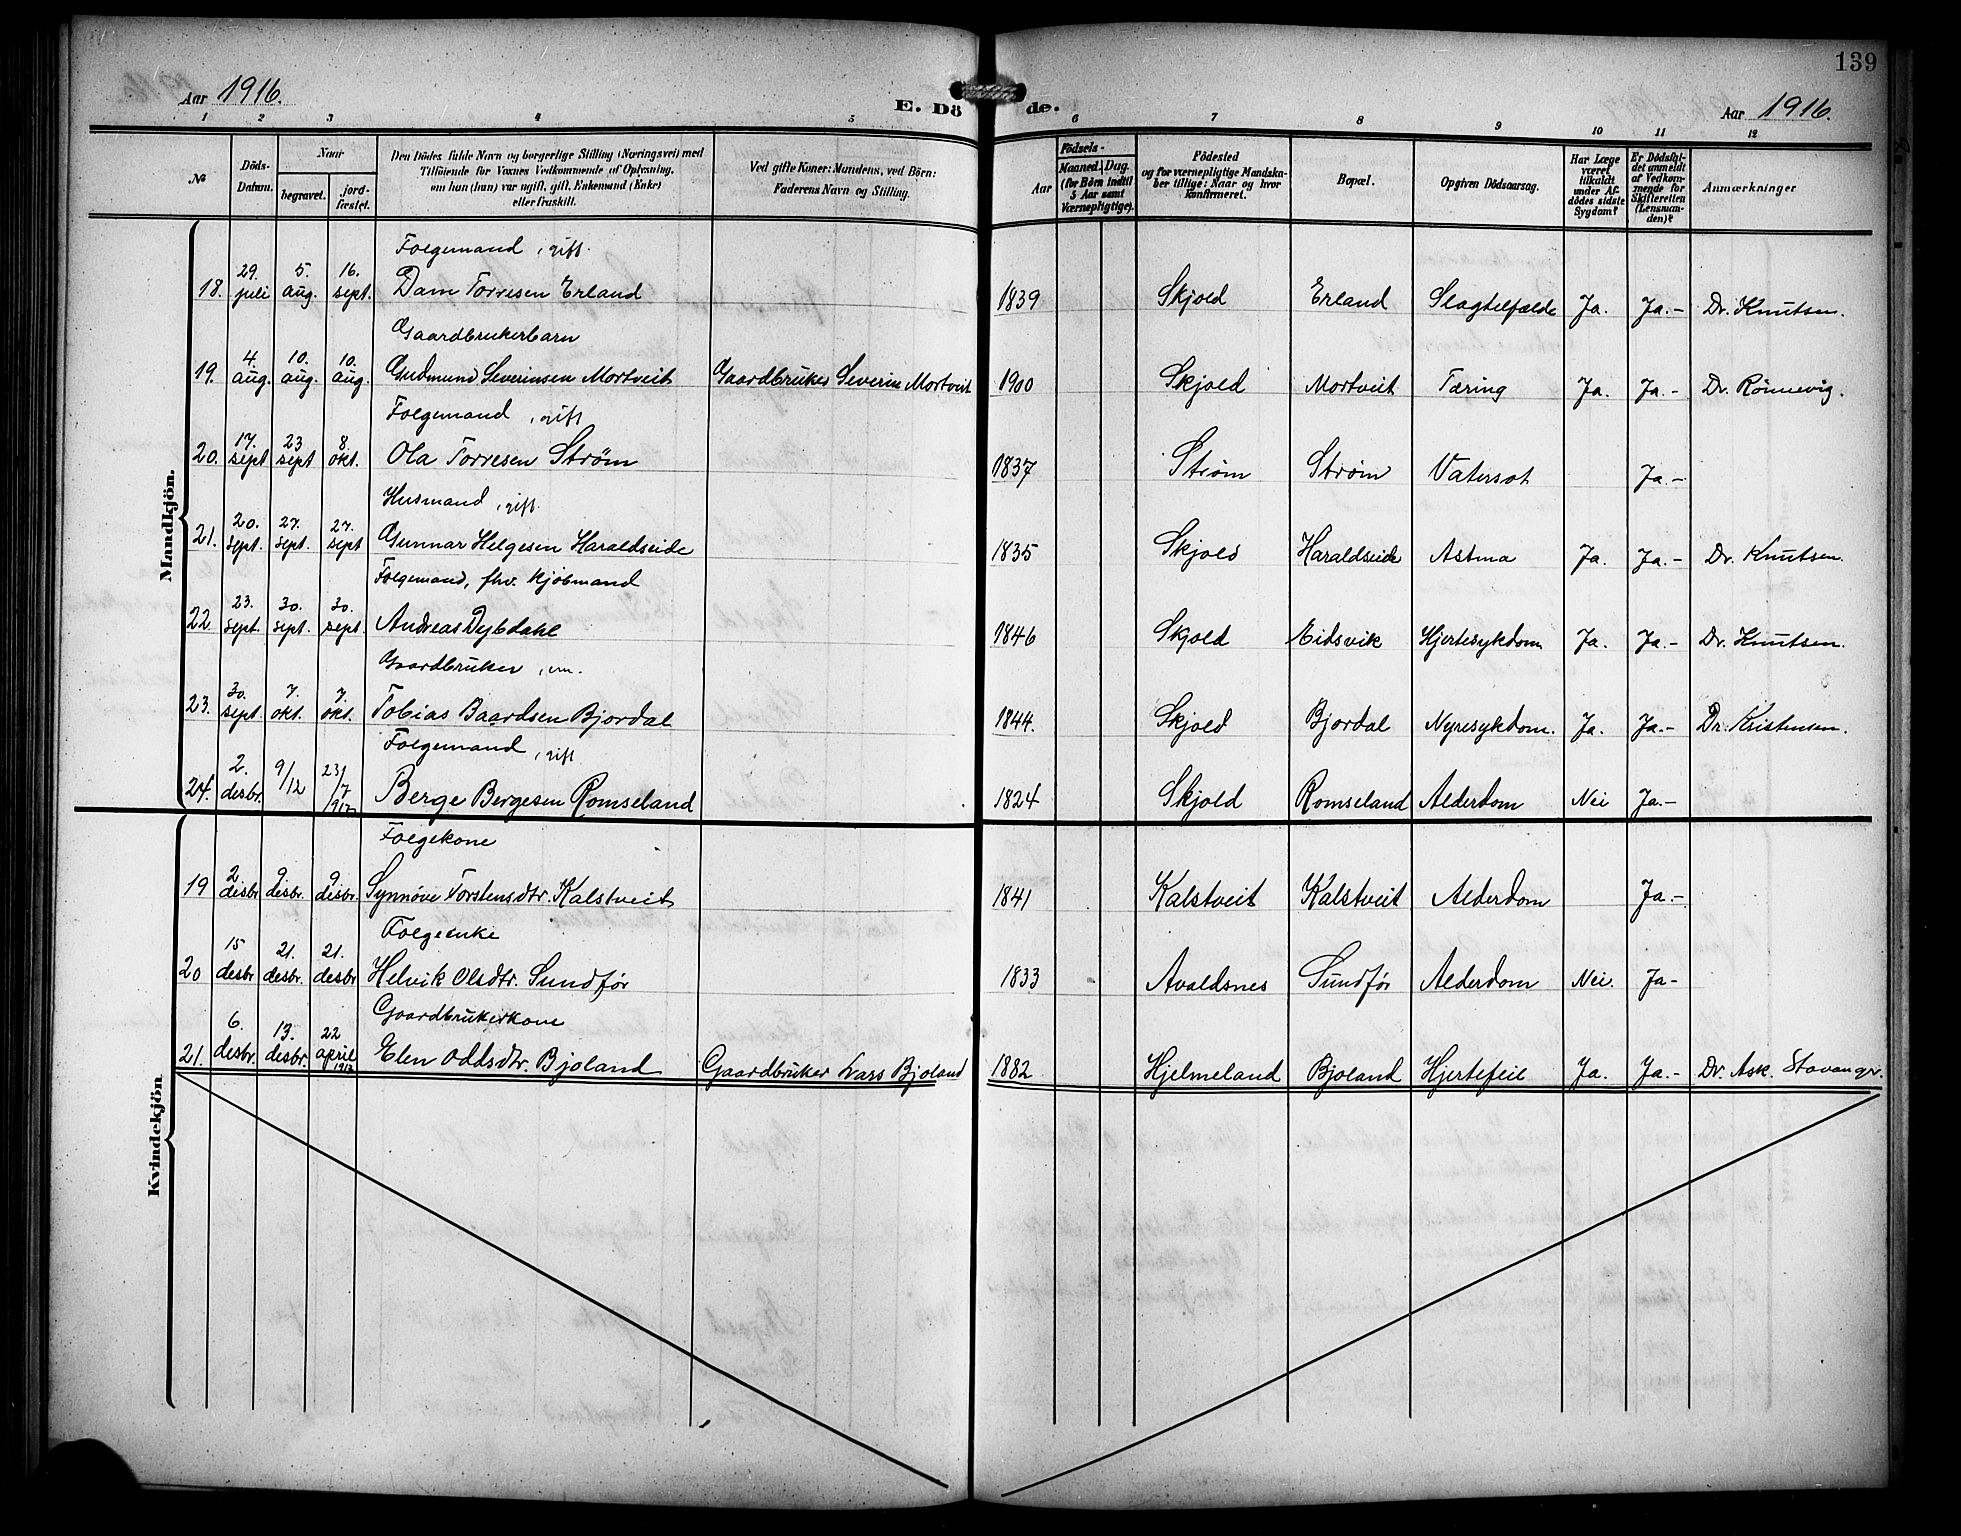 139
Aar 1916.
E. Dö de.
Aar 1916.
1 2 3 4 5 6 7 8 9 10 11 12
№
Döds-Datum.
Naar
begravet.
jord-fæstet.
Den Dödes fulde Navn og borgerlige Stilling (Næringsvei) med
Tilföiende for Voxnes Vedkommende af Oplysning,
om han (hun) var ugift, gift, Enkemand (Enke)
eller fraskilt.
Ved gifte Koner: Mandens, ved Börn:
Faderens Navn og Stilling.
Födsels-
Aar
Maaned.
Dag.
(for Börn indtil
5 Aar samt
Værnepligtige).
Födested
og for værnepligtige Mandska-
ber tillige: Naar og hvor
Konfirmeret.
Bopæl.
Opgiven Dödsaarsag.
Har Læge
været
tilkaldt
under Af-
dödes sidste
Sygdom?
Er Dödsfal-
det anmeldt
af Vedkom-
mende for
Skifteretten
(Lensman-
den)?
Anmærkninger
Mandkjön.
Folgemand, gift.
18. 29. juli 5. aug. 16. sept. Dam Torresen Erland 1839 Skjold Erland Slagtilfælde Ja. Ja.- Dr. Knutsen.
Gaardbrukerbarn
19. 4. aug. 10. aug. 10. aug. Gudmund Severinsen Mortveit Gaardbruker Severin Mortveit 1900 Skjold Mortveit Tæring Ja. Ja.- Dr. Rönnevig.
Folgemand, gift
20. 17. sept 23 sept 8. okt. Ola Torresen Strøm 1837 Strøm Strøm Vatersot Ja.-
Husmand, gift.
21. 20. sept. 27. sept. 27. sept Gunnar Helgesen Haraldseide 1835 Skjold Haraldseide Astma Ja. Ja.- Dr. Knutsen.
Folgemand, fhv. kjöbmand
22 23. sept. 30. sept. 30. sept. Andreas Dybdahl 1846 Skjold Eidsvik Hjertesykdom Ja. Ja.- Dr. Knutsen.
Gaardbruker,
23. 30. sept 7. okt. 7. okt. Tobias Baardsen Bjordal 1844 Skjold Bjordal Nyresykdom. Ja. Ja.- Dr. Kristensen.
Folgemand, gift
24. 2. desbr. 9/12 23/7 1917 Berge Bergesen Romseland 1824 Skjold Romseland Alderdom Nei Ja.-
Kvindekjön
Folgekone
19 2 desbr 9 desbr. 9 desbr. Synnöve Torstensdtr. Kalstveit 1841 Kalstveit Kalstveit Alderdom Ja.-
Folgeenke
20 15 desbr 21. desbr. 21. desbr Helvik Olsdtr. Sundför 1833 Avaldsnes Sundför Alderdom Nei. Ja-
Gaardbrukerkone
21. 6. desbr. 13. desbr. 22 april 1917 Elen Oddsdtr. Bjoland Gaardbruker Lars Bjoland 1882 Hjelmeland Bjoland Hjertefeil Ja. Ja.- Dr. Ask. Stavanger.